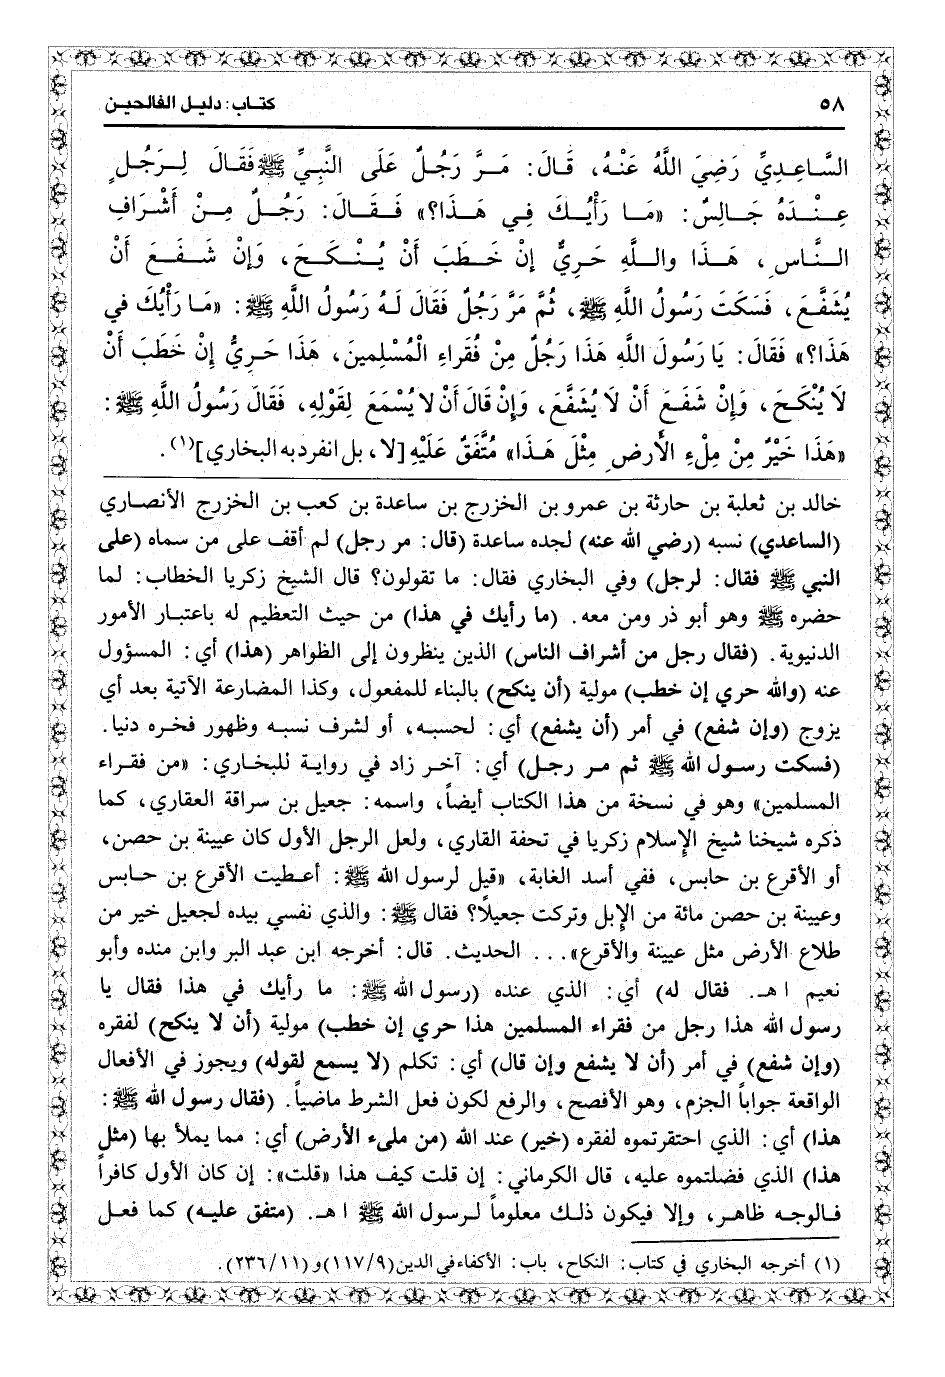 ٥٨
كتاب: دليل الفالحين
السَّاعِدِيِّ رَضِيَ اللَّهُ عَنْهُ، قَالَ: مَرَّ رَجُلٌ عَلَى النَّبِيِّ ﷺ فَقَالَ لِرَجُلٍ
عِنْدَهُ جَالِسٌ: «مَا رَأْيُكَ فِي هَذَا؟» فَقَالَ: رَجُلٌ مِنْ أَشْرَافِ
النَّاسِ، هَذَا واللَّهِ حَرِيٌّ إنْ خَطَبَ أَنْ يُنْكَحَ، وَإنْ شَفَعَ أَنْ
يُشَفَّعَ، فَسَكَتَ رَسُولُ اللَّهِ ﷺ، ثُمَّ مَرَّ رَجُلٌ فَقَالَ لَهُ رَسُولُ اللَّهِ ﷺ: «مَا رَأْيُكَ في
هَذَا؟» فَقَالَ: يَا رَسُولَ اللَّهِ هَذَا رَجُلٌ مِنْ فُقَراءِ الْمُسْلِمِينَ، هَذَا حَرِيٌّ إِنْ خَطَبَ أَنْ
لَا يُنْكَحَ، وَإِنْ شَفَعَ أَنْ لَا يُشَفَّعَ، وَإِنْ قَالَ أَنْ لَا يُسْمَعَ لِقَوْلِهِ، فَقَالَ رَسُولُ اللَّهِ ﷺ:
«هَذَا خَيْرٌ مِنْ مِلْءِ الْأَرْضِ مِثْلَ هَذَا» مُتَّفَقٌ عَلَيْهِ [لا، بل انفرد به البخاري](١).
خالد بن ثعلبة بن حارثة بن عمرو بن الخزرج بن ساعدة بن كعب بن الخزرج الأنصاري
(الساعدي) نسبه (رضي الله عنه) لجده ساعدة (قال: مر رجل) لم أقف على من سماه (على
النبي ﷺ فقال: لرجل) وفي البخاري فقال: ما تقولون؟ قال الشيخ زكريا الخطاب: لما
حضره ﷺ وهو أبو ذر ومن معه. (ما رأيك في هذا) من حيث التعظيم له باعتبار الأمور
الدنيوية. (فقال رجل من أشراف الناس) الذين ينظرون إلى الظواهر (هذا) أي: المسؤول
عنه (والله حري إن خطب) مولية (أن ينكح) بالبناء للمفعول، وكذا المضارعة الآتية بعد أي
يزوج (وإن شفع) في أمر (أن يشفع) أي: لحسبه، أو لشرف نسبه وظهور فخره دنيا.
(فسكت رسول الله ﷺ ثم مر رجل) أي: آخر زاد في رواية للبخاري: «من فقراء
المسلمين» وهو في نسخة من هذا الكتاب أيضاً، واسمه: جعيل بن سراقة العقاري، كما
ذكره شيخنا شيخ الإسلام زكريا في تحفة القاري، ولعل الرجل الأول كان عيينة بن حصن،
أو الأقرع بن حابس، ففي أسد الغابة، «قيل لرسول الله ﷺ: أعطيت الأقرع بن حابس
وعيينة بن حصن مائة من الإبل وتركت جعيلاً؟ فقال ﷺ: والذي نفسي بيده لجعيل خير من
طلاع الأرض مثل عيينة والأقرع»... الحديث. قال: أخرجه ابن عبد البر وابن منده وأبو
نعيم ا هـ. فقال له) أي: الذي عنده (رسول الله ﷺ: ما رأيك في هذا فقال يا
رسول الله هذا رجل من فقراء المسلمين هذا حري إن خطب) مولية (أن لا ينكح) لفقره
(وإن شفع) في أمر (أن لا يشفع وإن قال) أي: تكلم (لا يسمع لقوله) ويجوز في الأفعال
الواقعة جواباً الجزم، وهو الأفصح، والرفع لكون فعل الشرط ماضياً. (فقال رسول الله ﷺ:
هذا) أي: الذي احتقرتموه لفقره (خير) عند الله (من مليء الأرض) أي: مما يملأ بها (مثل
هذا) الذي فضلتموه عليه، قال الكرماني: إن قلت كيف هذا «قلت»: إن كان الأول كافراً
فالوجه ظاهر، وإلا فيكون ذلك معلوماً لرسول الله ﷺ ا هـ. (متفق عليه) كما فعل
(١) أخرجه البخاري في كتاب: النكاح، باب: الأكفاء في الدين (١١٧/٩) و (٢٣٦/١١).